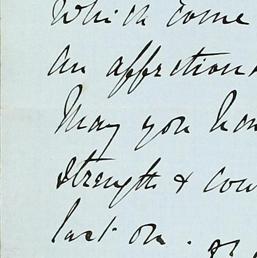 which come
an affection
May you have
strength & cou
last on.